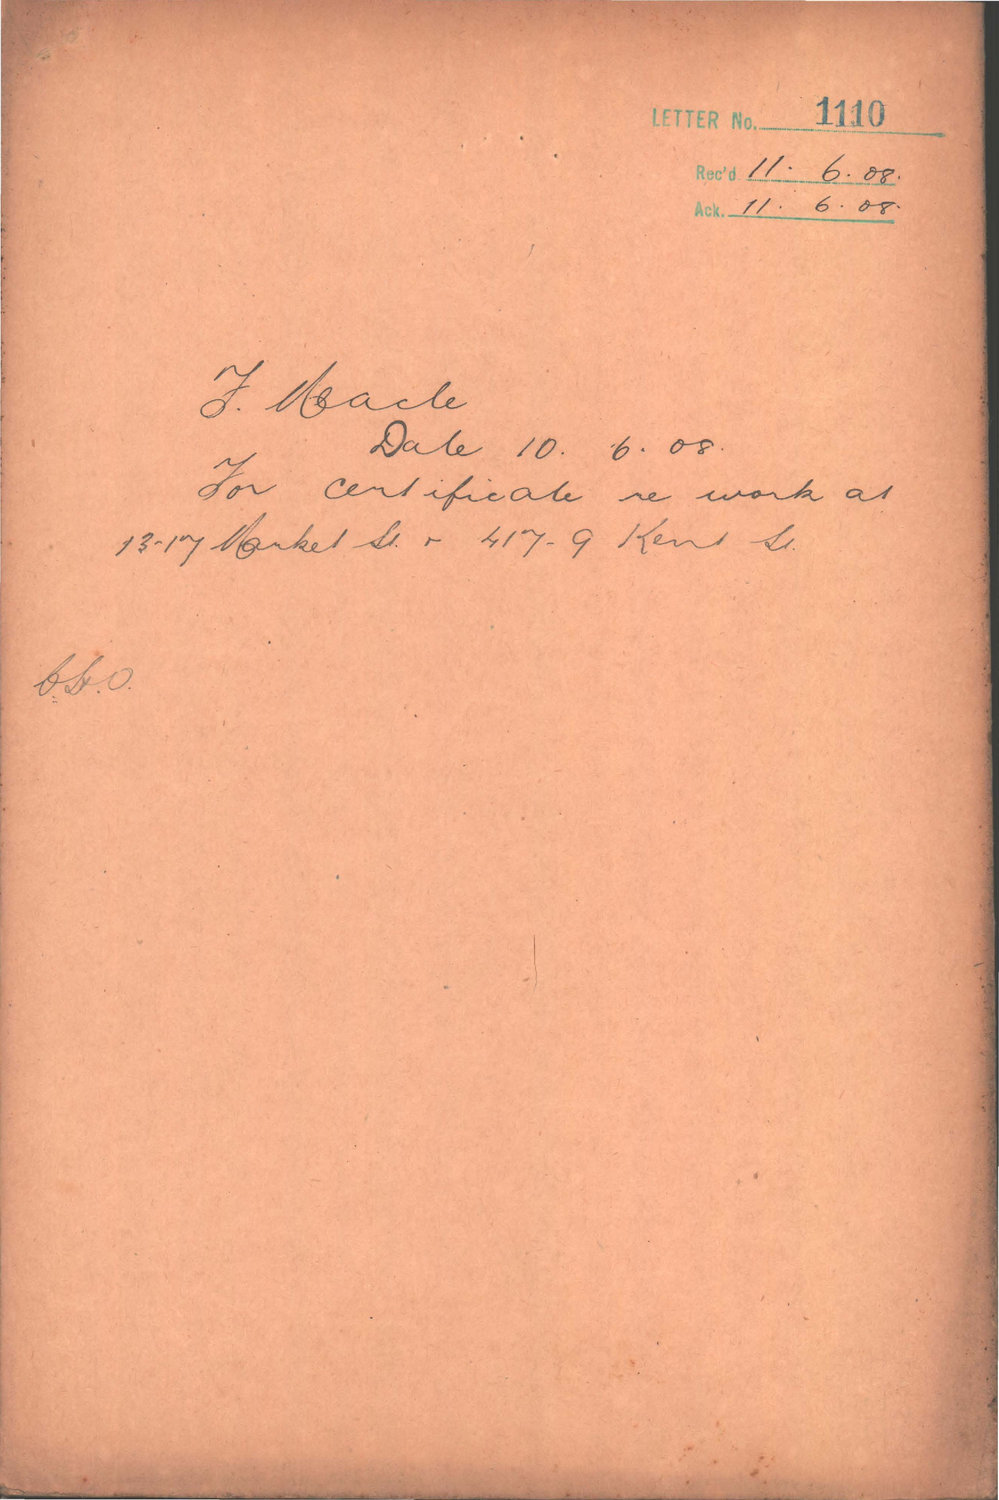 LETTER No. 1110
Rec'd 11. 6. 08.
Ack. 11. 6. 08.
F. Meacle
Date 10. 6. 08.
For certificate re work at
13-17 Market St. & 417-9 Kent St.